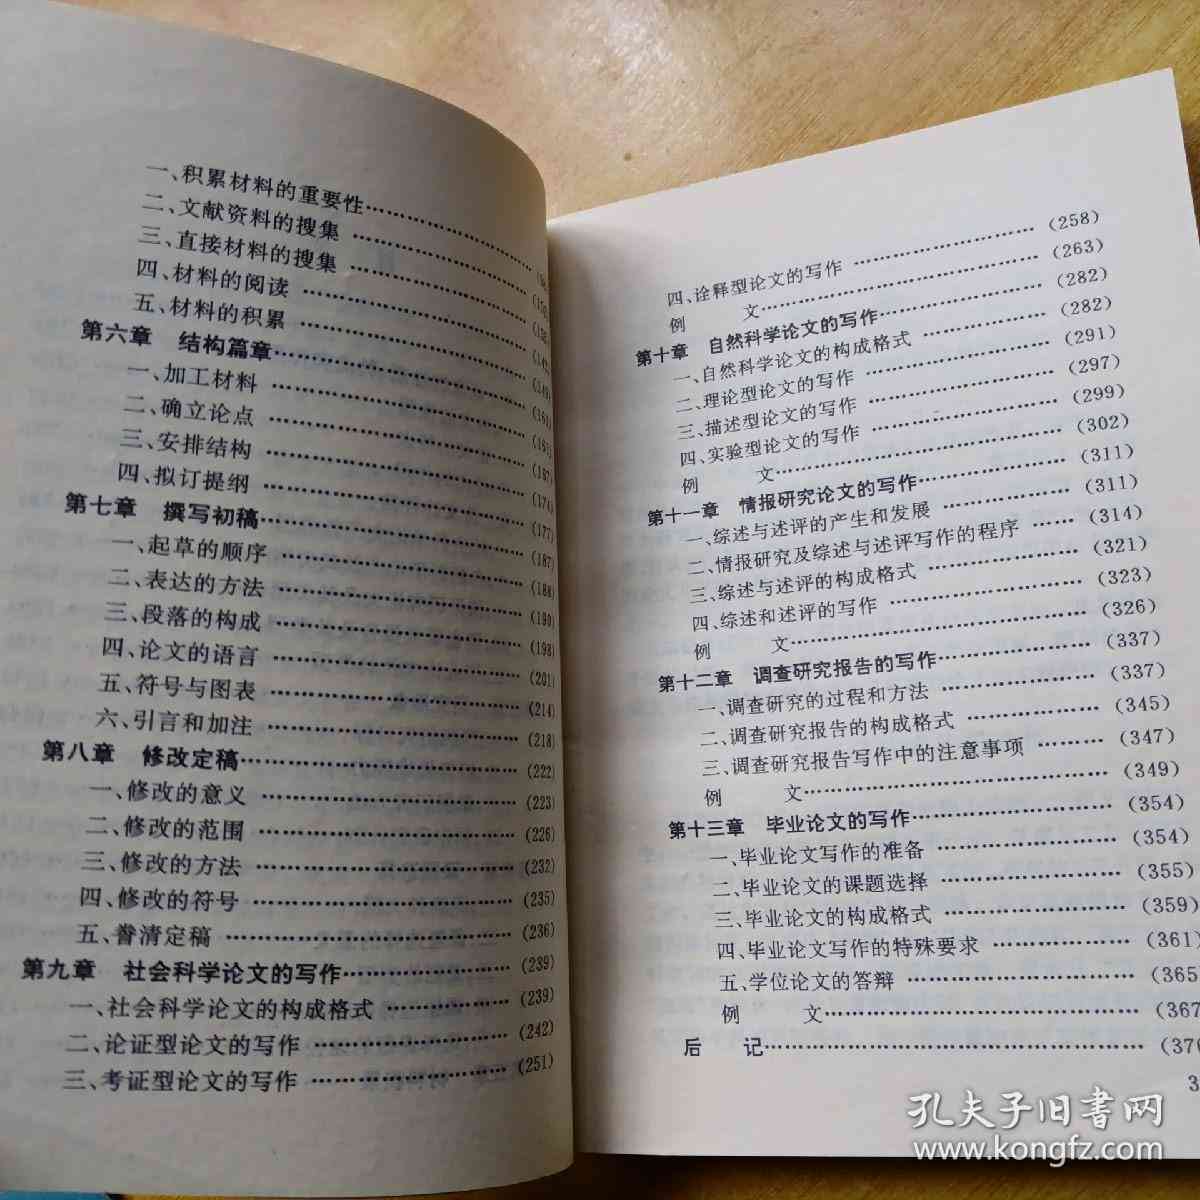 一、积累材料的重要性………………
二、文献资料的搜集………………
三、直接材料的搜集………………
四、材料的阅读………………
五、材料的积累………………
第六章 结构篇章………………
一、加工材料………………(149)
二、确立论点………………(161)
三、安排结构………………
四、拟订提纲………………(167)
第七章 撰写初稿………………(177)
一、起草的顺序………………(187)
二、表达的方法………………(188)
三、段落的构成………………(190)
四、论文的语言………………(198)
五、符号与图表………………(201)
六、引言和加注………………(214)
第八章 修改定稿………………(222)
一、修改的意义………………(223)
二、修改的范围………………(226)
三、修改的方法………………(232)
四、修改的符号………………(235)
五、誊清定稿………………(236)
第九章 社会科学论文的写作………………(239)
一、社会科学论文的构成格式………………(239)
二、论证型论文的写作………………(242)
三、考证型论文的写作………………(251)
四、诠释型论文的写作………………(258)
例 文………………(263)
第十章 自然科学论文的写作………………(282)
一、自然科学论文的构成格式………………(282)
二、理论型论文的写作………………(291)
三、描述型论文的写作………………(297)
四、实验型论文的写作………………(299)
例 文………………(302)
第十一章 情报研究论文的写作………………(311)
一、综述与述评的产生和发展………………(311)
二、情报研究及综述与述评写作的程序……(314)
三、综述与述评的构成格式………………(321)
四、综述和述评的写作………………(323)
例 文………………(326)
第十二章 调查研究报告的写作………………(337)
一、调查研究的过程和方法………………(337)
二、调查研究报告的构成格式………………(345)
三、调查研究报告写作中的注意事项………(347)
例 文………………(349)
第十三章 毕业论文的写作………………(354)
一、毕业论文写作的准备………………(354)
二、毕业论文的课题选择………………(355)
三、毕业论文的构成格式………………(359)
四、毕业论文写作的特殊要求………………(361)
五、学位论文的答辩………………(365)
例 文………………(367)
后 记………………(376
3
孔夫子旧书网
www.kongfz.com